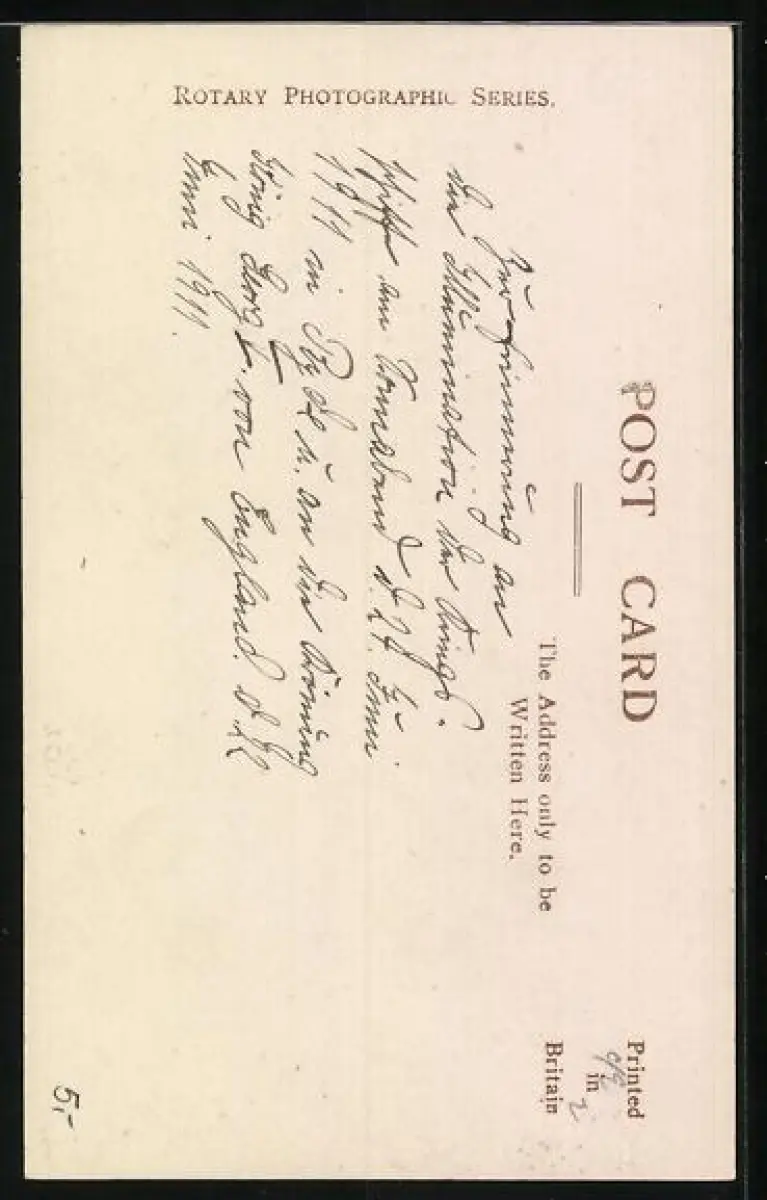 ROTARY PHOTOGRAPHIC SERIES.
POST CARD
The Address only to be
Written Here.
Printed
in
Britain
Zur Erinnerung an
die Illumination der Kriegs-
schiffe am Vorabend d. 24. Juni
1911 in Ryde u. an die Krönung
König Georg V. von England. d. 22
Juni 1911.
5,-